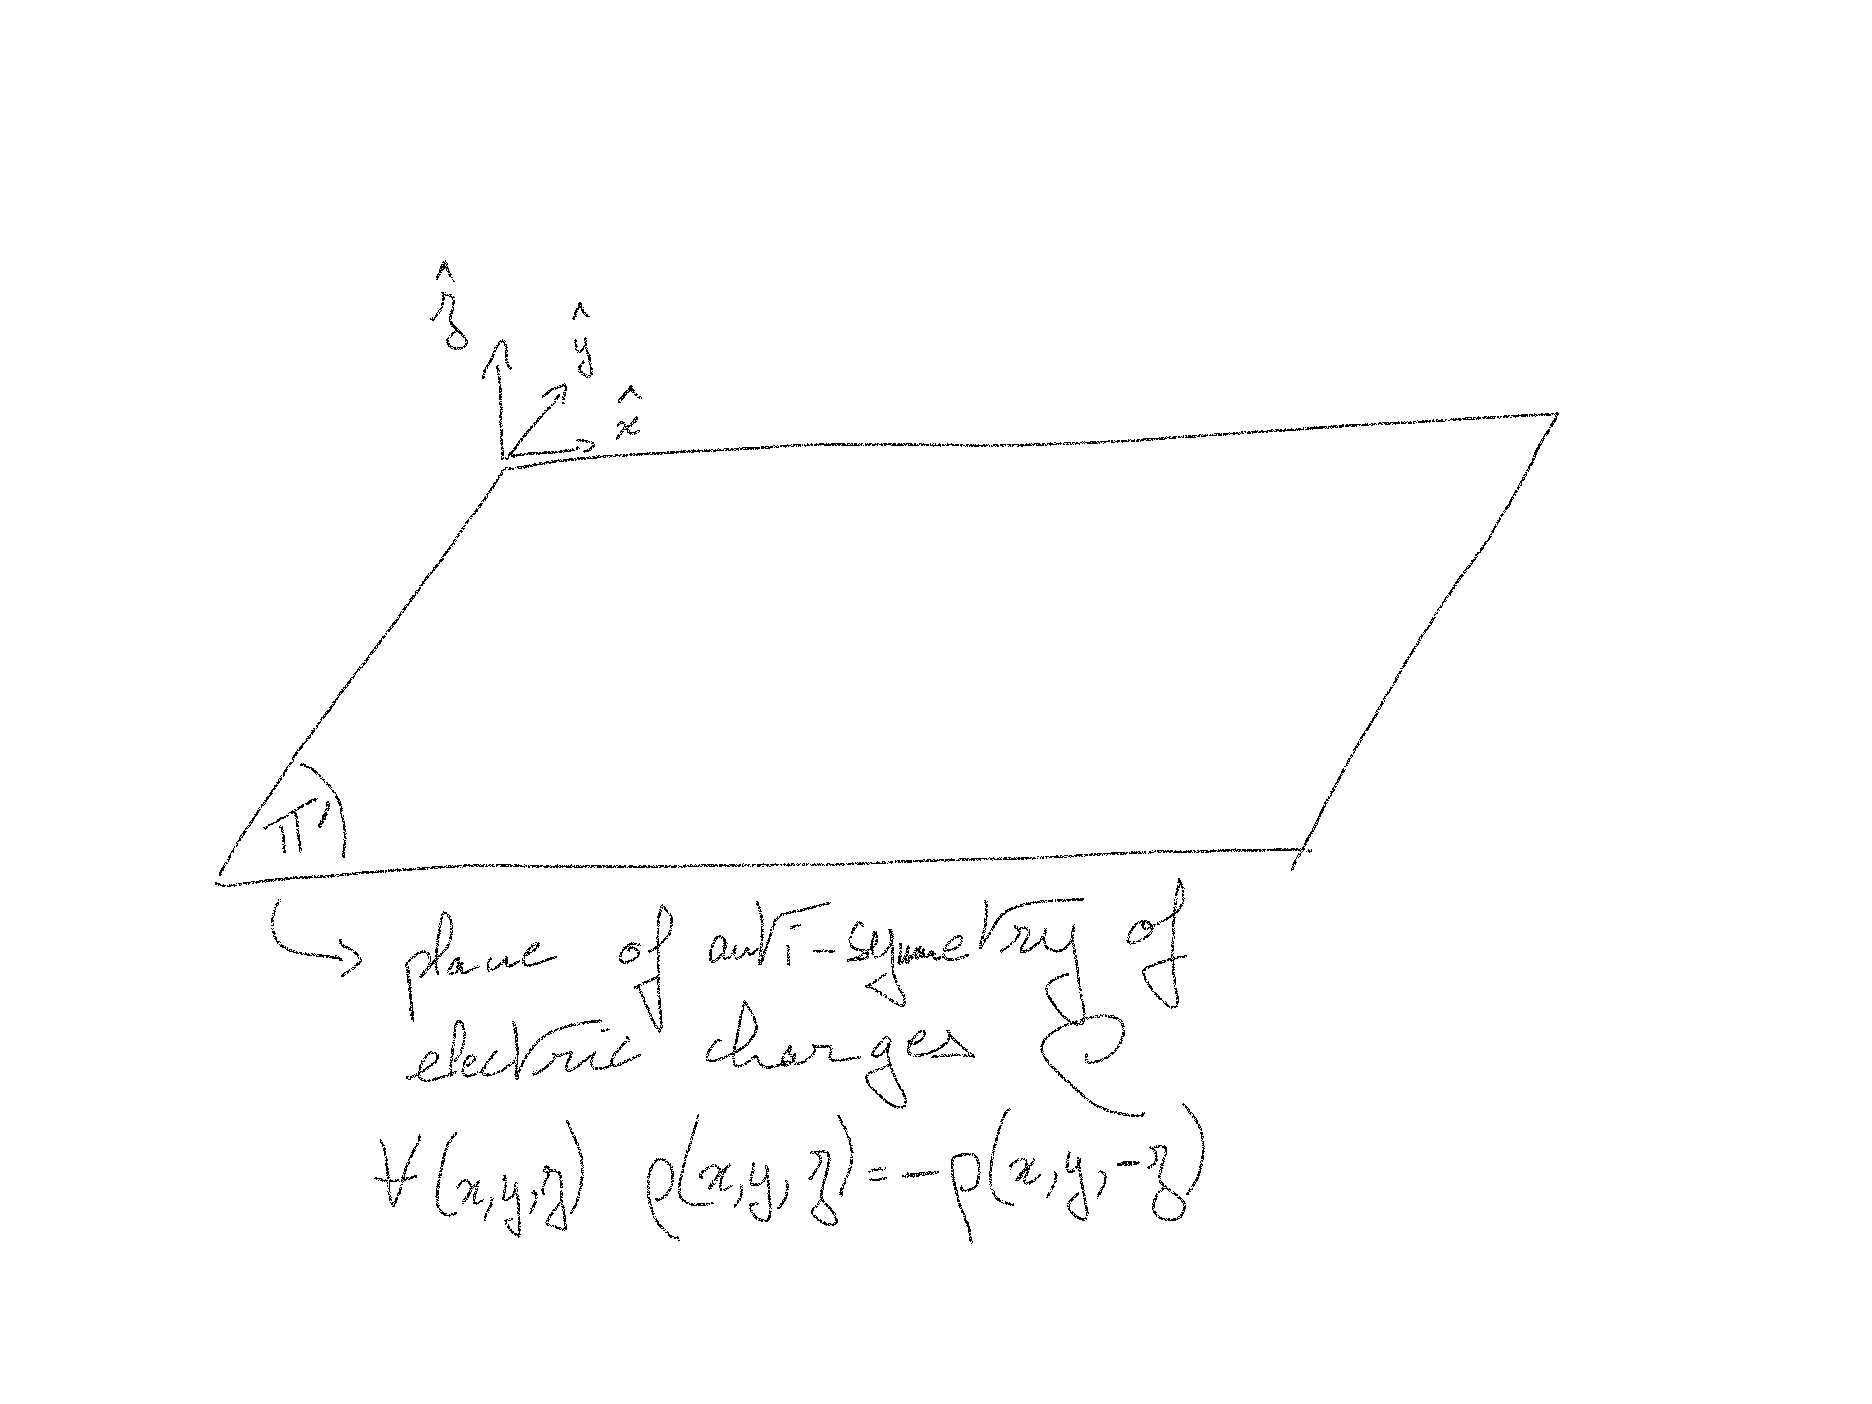 ẑ
ŷ
x̂
π'
plane of anti-symmetry of
electric charges
∀(x,y,z) ρ(x,y,z)=-ρ(x,y,-z)